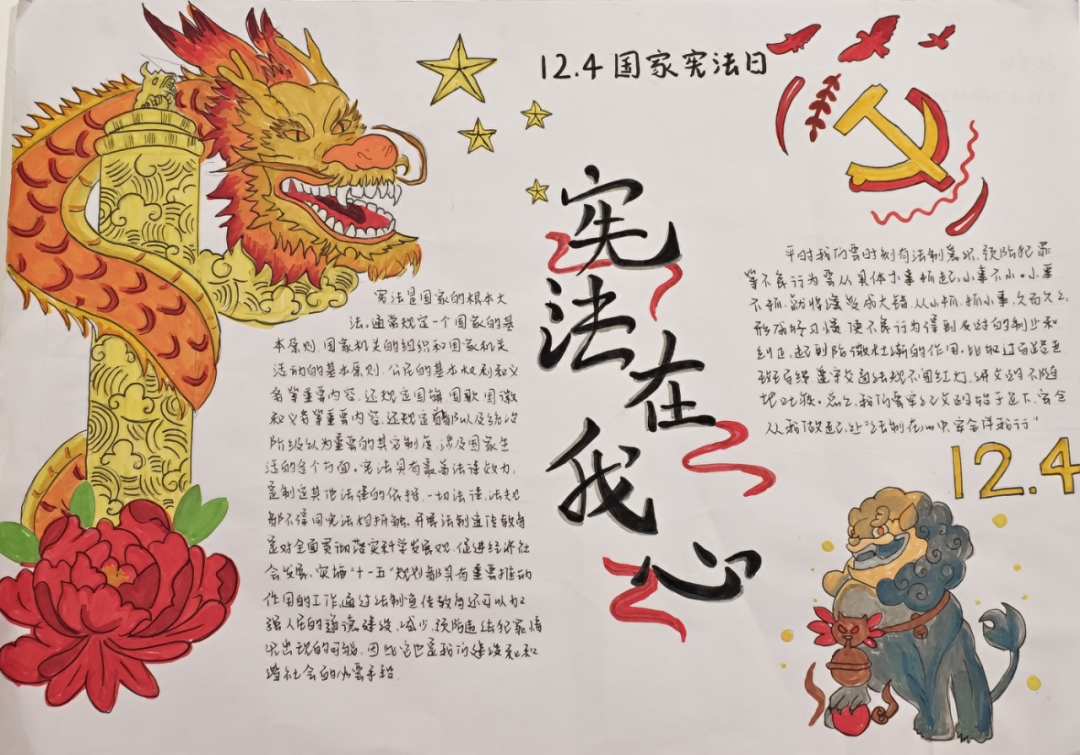 12.4国家宪法日
宪法在我心
宪法是国家的根本大
法,通常规定一个国家的基
本原则、国家机关的组织和国家机关
活动的基本原则、公民的基本权利和义
务等重要内容,还规定国旗国歌国徽
和义务等重要内容,还规定首都以及统治
阶级认为重要的其它制度,涉及国家生
活的各个方面。宪法具有最高法律效力,
是制定其他法律的依据,一切法律、法规
都不得同宪法相抵触。开展法制宣传教育
是对全面贯彻落实科学发展观,促进经济社
会发展,实施“十一五”规划都具有重要推动
作用的工作,通过法制宣传教育还可以加
强人民的道德建设,减少、预防违法犯罪情
况出现的可能,因此它也是我们建设和
谐社会的必要手段
平时我们要时刻有法制意识,预防犯罪
等不良行为要从具体小事抓起,小事不小,小事
不抓,就将演变成大错,从小抓,抓小事,久而久之,
形成好习惯,使不良行为得到及时的制止和
纠正,起到防微杜渐的作用。比如过马路走
班马线 遵守交通法规不闯红灯,讲文明不随
地吐痰。总之,我们要牢记文明给予足下,安全
从我做起,让“法制在心中,安全伴我行”
12.4